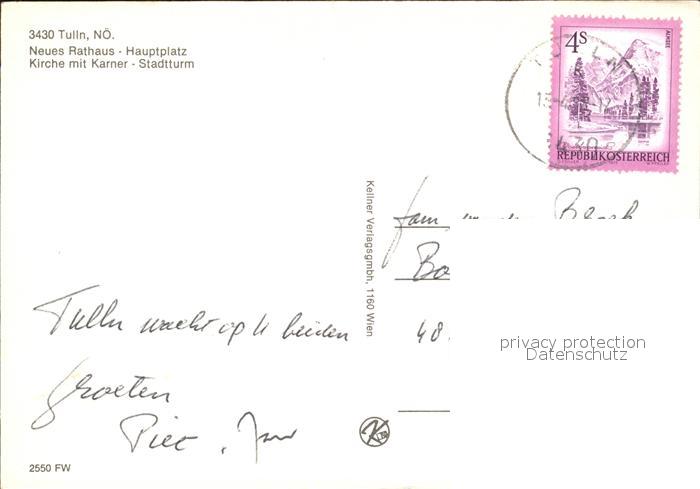 3430 Tulln, NÖ.
Neues Rathaus · Hauptplatz
Kirche mit Karner · Stadtturm
4S
ALMSEE
REPUBLIK ÖSTERREICH
Kellner Verlagsgmbh, 1160 Wien
Fam
Bo
48
privacy protection
Datenschutz
Tulln wacht op U beiden
Groeten
Piet
2550 FW